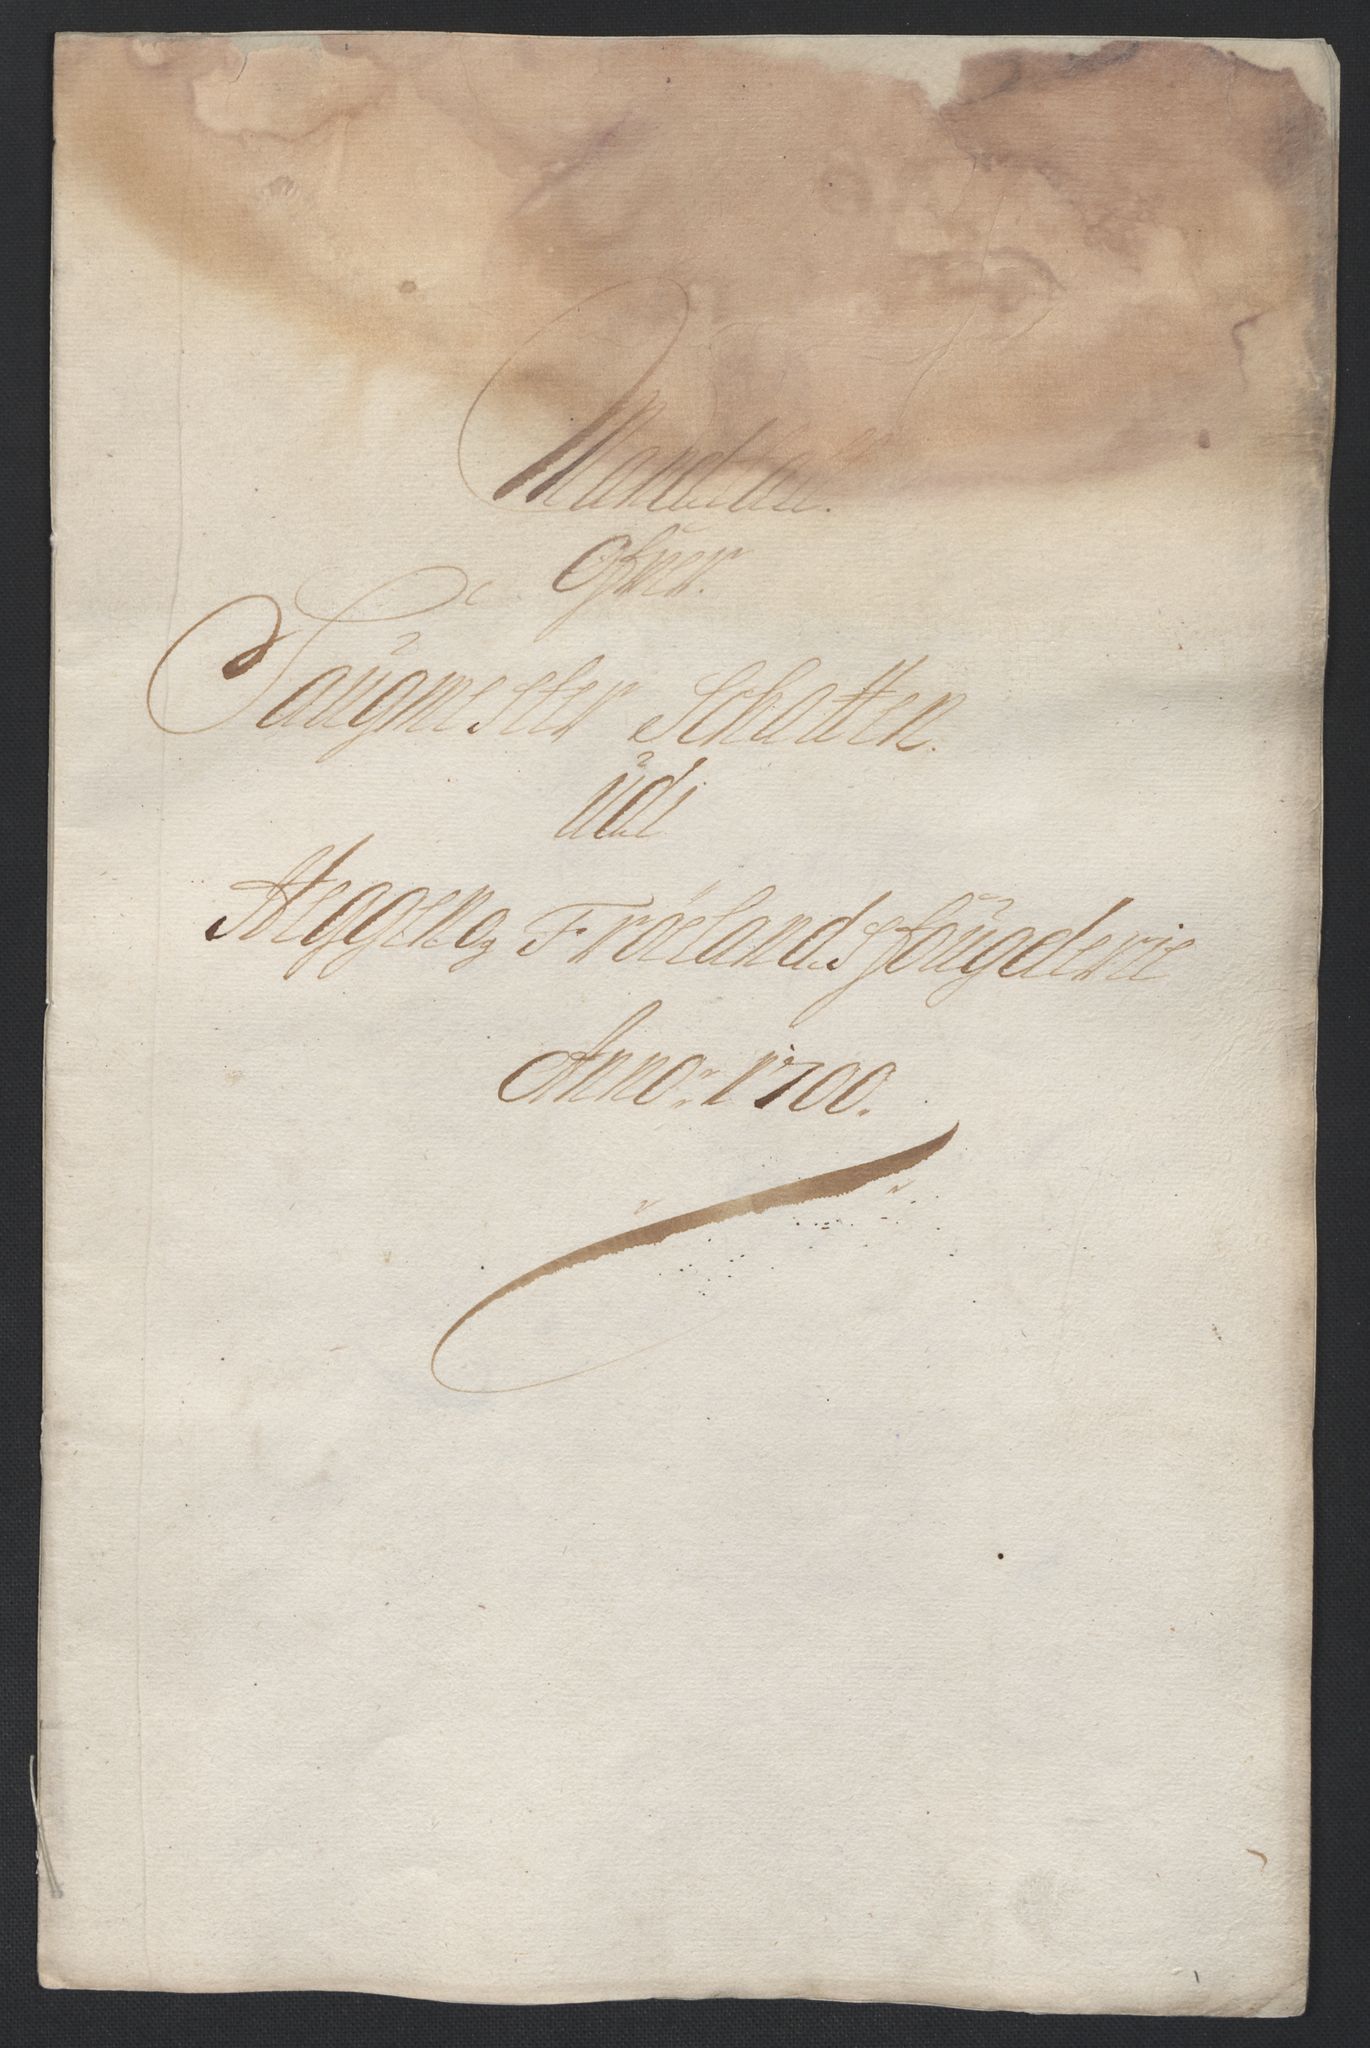 Mandtal
ofver
Saugmester Schatten.
udi
Heggen og Frøelands fougderie
Anno: 1700.